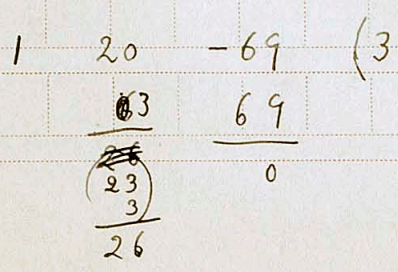 1 20 -69 (3
63 69
26 0
(23
3)
26